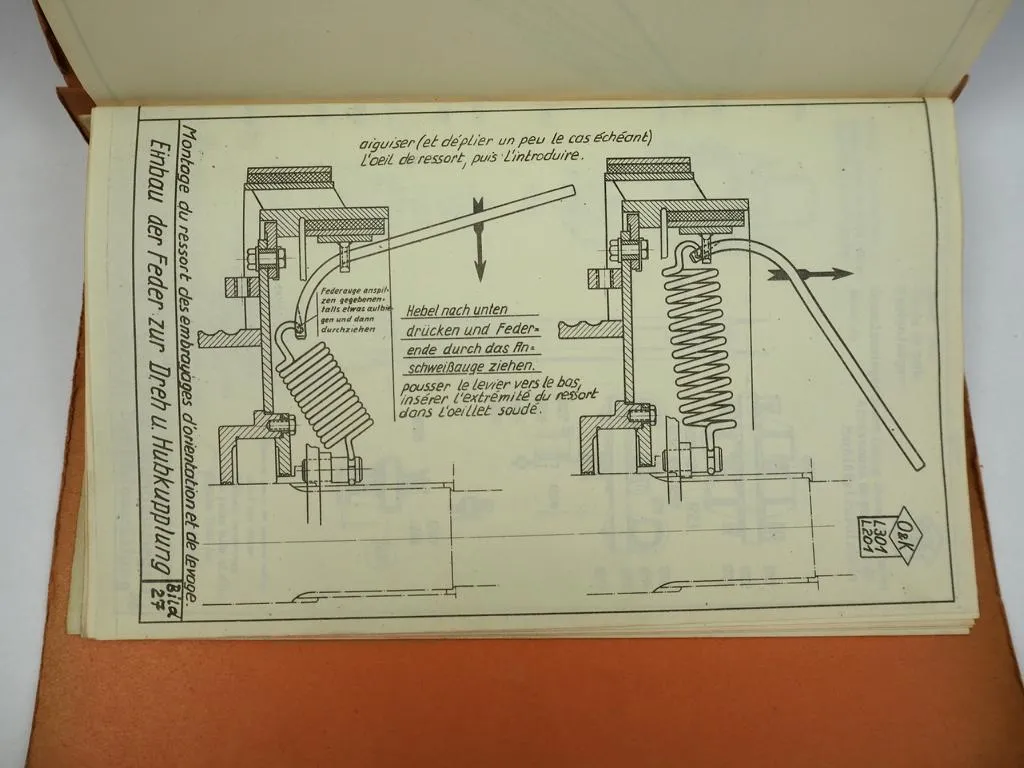 aiguiser (et déplier un peu le cas échéant)
l'oeil de ressort, puis l'introduire.
Federauge anspit-
zen gegebenen-
falls etwas aufbie-
gen und dann
durchziehen
Hebel nach unten
drücken und Feder=
ende durch das An=
schweißauge ziehen.
pousser le levier vers le bas,
insérer l'extrémité du ressort
dans l'oeillet soudé.
Montage du ressort des embrayages d'orientation et de levage.
Einbau der Feder zur Dreh u. Hubkupplung
Bild
27
O&K
L301
L201